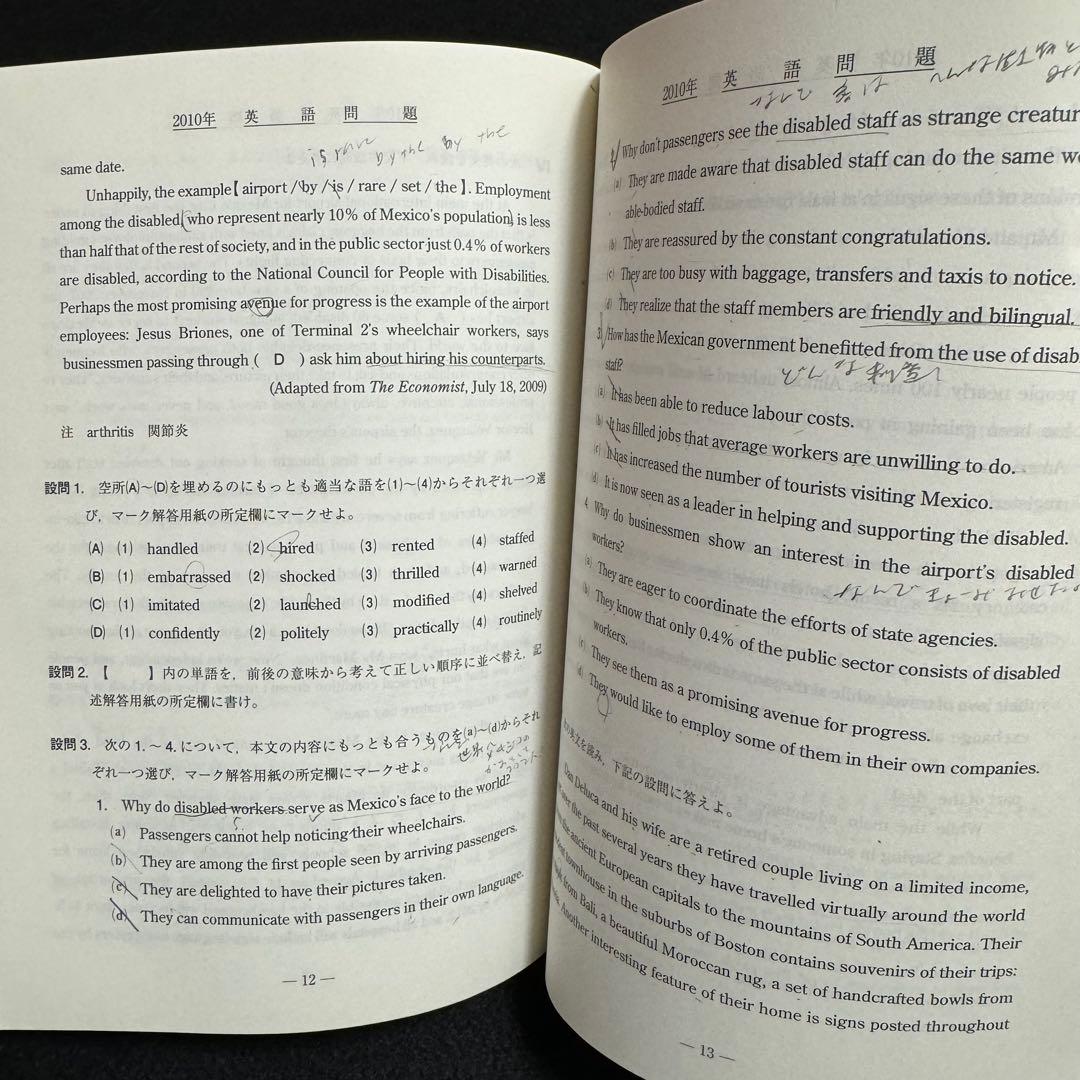 2010年 英 語 問 題
is rare by the by the
same date.
Unhappily, the example【 airport / by / is / rare / set / the 】. Employment
among the disabled, who represent nearly 10% of Mexico's population, is less
than half that of the rest of society, and in the public sector just 0.4% of workers
are disabled, according to the National Council for People with Disabilities.
Perhaps the most promising avenue for progress is the example of the airport
employees: Jesus Briones, one of Terminal 2's wheelchair workers, says
businessmen passing through ( D ) ask him about hiring his counterparts.
(Adapted from The Economist, July 18, 2009)
注 arthritis 関節炎
設問1. 空所(A)～(D)を埋めるのにもっとも適当な語を(1)～(4)からそれぞれ一つ選
び，マーク解答用紙の所定欄にマークせよ。
(A) (1) handled (2) hired (3) rented (4) staffed
(B) (1) embarrassed (2) shocked (3) thrilled (4) warned
(C) (1) imitated (2) launched (3) modified (4) shelved
(D) (1) confidently (2) politely (3) practically (4) routinely
設問2.【 】内の単語を，前後の意味から考えて正しい順序に並べ替え，記
述解答用紙の所定欄に書け。
設問3. 次の1.～4.について，本文の内容にもっとも合うものを(a)～(d)からそれ
ぞれ一つ選び，マーク解答用紙の所定欄にマークせよ。
1. Why do disabled workers serve as Mexico's face to the world?
(a) Passengers cannot help noticing their wheelchairs.
(b) They are among the first people seen by arriving passengers.
(c) They are delighted to have their pictures taken.
(d) They can communicate with passengers in their own language.
— 12 —
2010年 英 語 問 題
Why don't passengers see the disabled staff as strange
(a) They are made aware that disabled staff can do the same
able-bodied staff.
(b) They are reassured by the constant congratulations.
(c) They are too busy with baggage, transfers and taxis to notice.
(d) They realize that the staff members are friendly and bilingual.
3. How has the Mexican government benefitted from the use of
staff?
(a) It has been able to reduce labour costs.
(b) It has filled jobs that average workers are unwilling to do.
(c) It has increased the number of tourists visiting Mexico.
(d) It is now seen as a leader in helping and supporting the disabled.
4. Why do businessmen show an interest in the airport's disabled
workers?
(a) They are eager to coordinate the efforts of state agencies.
(b) They know that only 0.4% of the public sector consists of disabled
workers.
(c) They see them as a promising avenue for progress.
(d) They would like to employ some of them in their own companies.
の英文を読み，下記の設問に答えよ。
Dan Deluca and his wife are a retired couple living on a limited income,
over the past several years they have travelled virtually around the world
the ancient European capitals to the mountains of South America. Their
townhouse in the suburbs of Boston contains souvenirs of their trips:
from Bali, a beautiful Moroccan rug, a set of handcrafted bowls from
Another interesting feature of their home is signs posted throughout
— 13 —